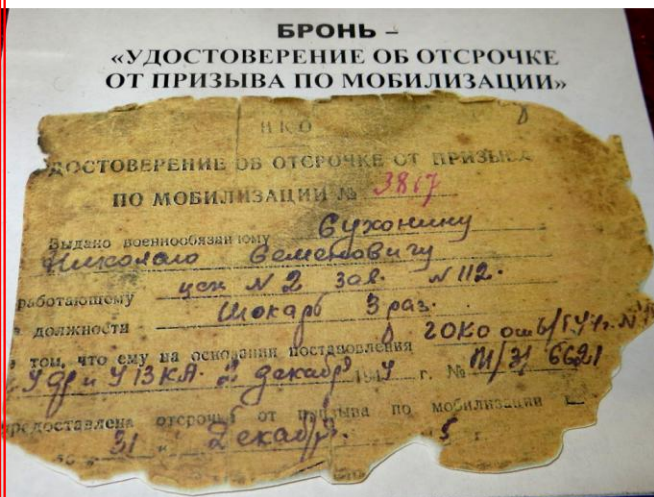 БРОНЬ –
«УДОСТОВЕРЕНИЕ ОБ ОТСРОЧКЕ
ОТ ПРИЗЫВА ПО МОБИЛИЗАЦИИ»
НКО
ДОСТОВЕРЕНИЕ ОБ ОТСРОЧКЕ ОТ ПРИЗЫВА
ПО МОБИЛИЗАЦИИ № 3817
Выдано военнообязанному Сухонину
Николаю Семеновичу
работающему цех N 2 зав. N 112.
должности Токарь 3 раз.
том, что ему на основании постановления ГОКО
декабря 194 г. №
предоставлена отсрочка от призыва по мобилизации
31 Декабря. 5 г.